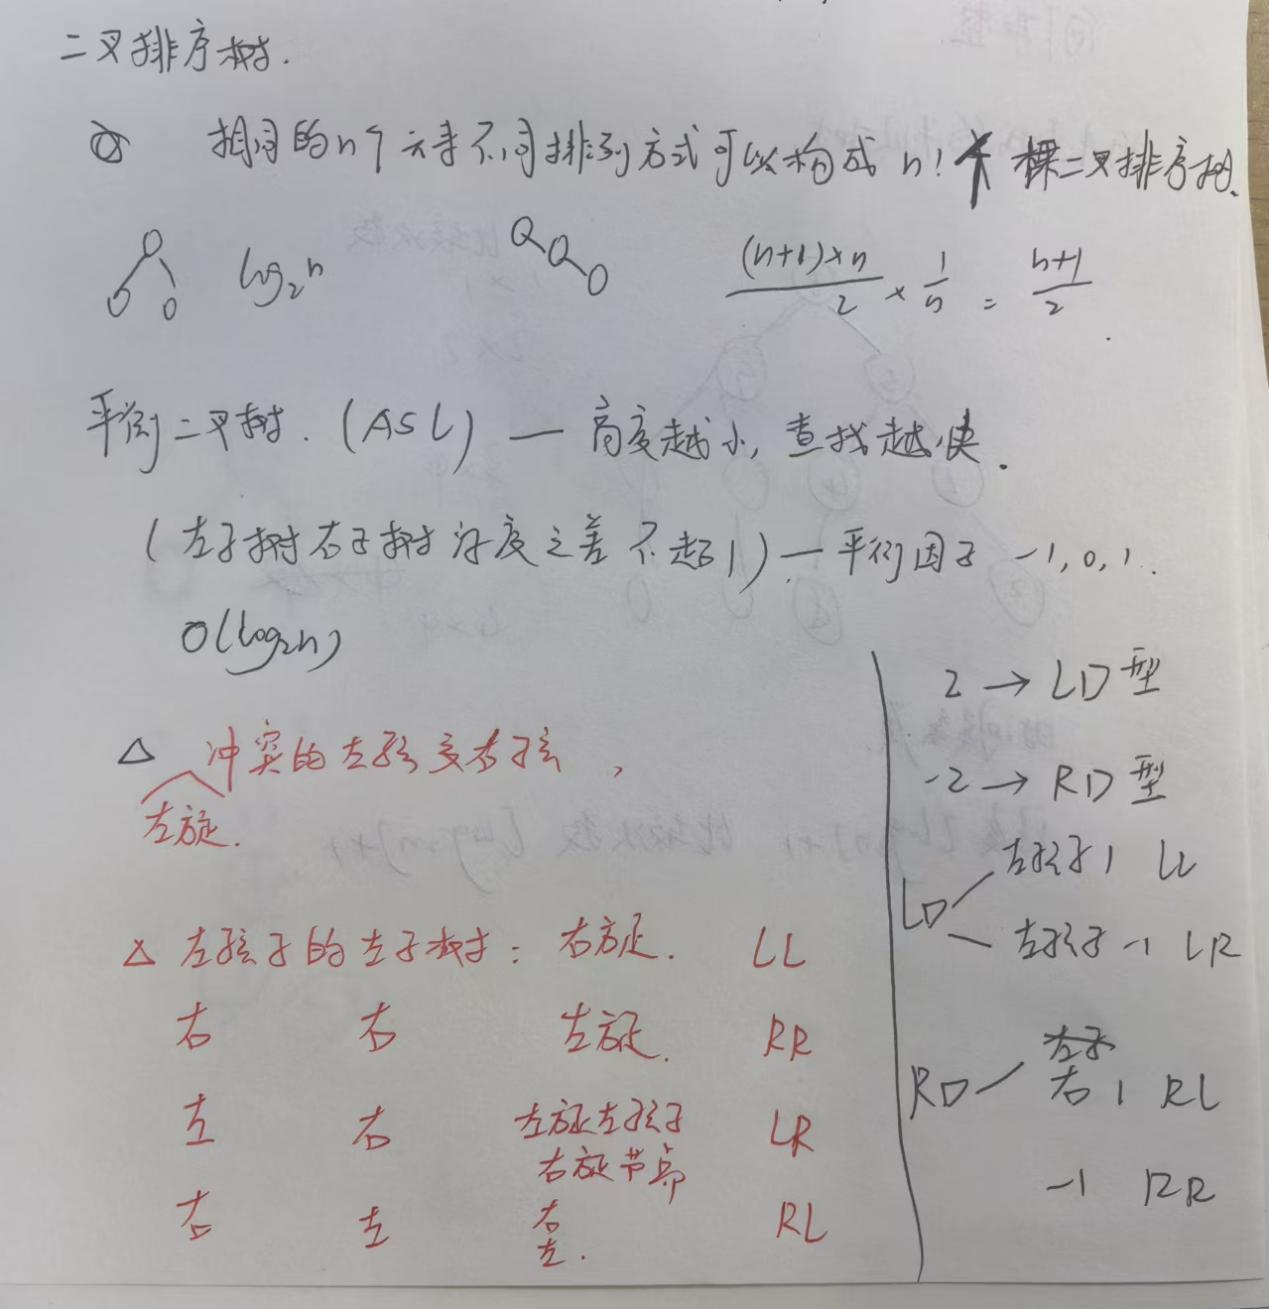 二叉排序树.
相同的n个元素不同排列方式可以构成 n! 棵二叉排序树.
log₂n
(n+1)×n/2 × 1/n = n+1/2
平衡二叉树. (ASL) — 高度越小, 查找越快.
(左子树右子树深度之差不超1) — 平衡因子 -1, 0, 1.
O(log₂n)
△ 冲突的左孩变右孩,
左旋.
△ 左孩子的左子树: 右旋. LL
右 右 左旋. RR
左 右 左旋左孩子 LR
右旋节点
右 左 右 RL
左.
2 → LD型
-2 → RD型
LD 左孩子 1 LL
左孩子 -1 LR
RD 右 1 RL
-1 RR